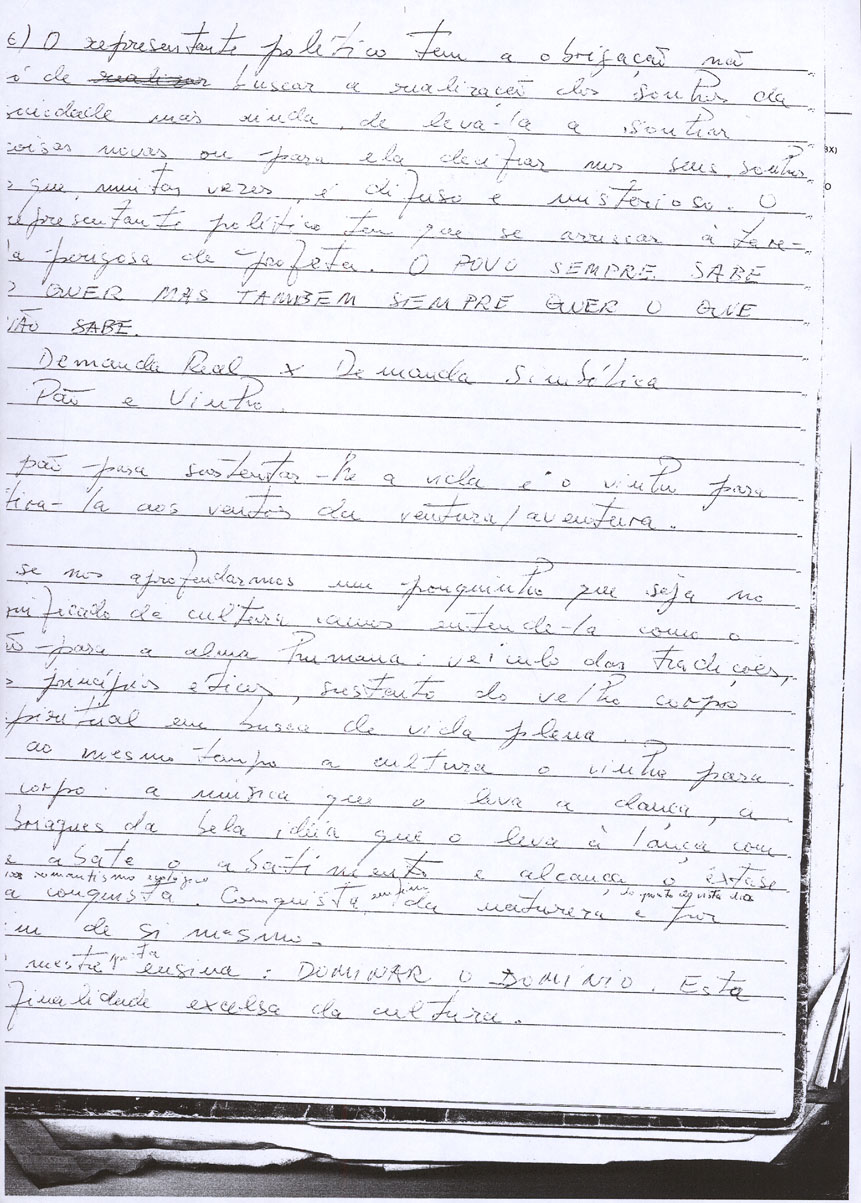 6) O representante político tem a obrigação nã
ó de realizar buscar a realização dos sonhos da
ciedade mas ainda, de levá-la a sonhar
coisas novas ou para ela decifrar nos seus sonhos
o que, muitas vezes, é difuso e misterioso. O
representante político tem que se arriscar à tare-
fa perigosa de profeta. O POVO SEMPRE SABE
O QUER MAS TAMBEM SEMPRE QUER O QUE
NÃO SABE.
Demanda Real x Demanda Simbólica
Pão e Vinho.
pão para sustentar-lhe a vida e o vinho para
tira-la aos ventos da ventura/aventura.
se nos aprofundarmos um pouquinho que seja no
nificado da cultura vamos entende-la como o
ão para a alma humana: veículo das tradições,
s princípios éticos, sustento do velho corpo
piritual em busca de vida plena.
ao mesmo tempo a cultura o vinho para
corpo: a música que o leva a dança, a
briagues da bela idéia que o leva à lança com
e abate o abatimento e alcança o êxtase
romantismo ecologico
a conquista. Conquista da natureza e por
im de si mesmo.
mestre poeta ensina: DOMINAR O DOMÍNIO. Esta
finalidade excelsa da cultura.